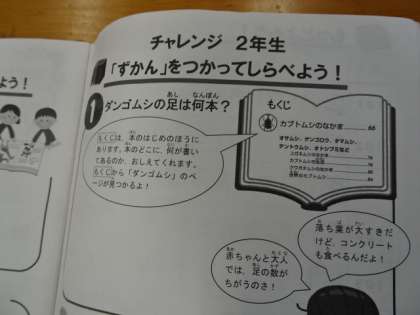 よう!
チャレンジ 2年生
「ずかん」をつかってしらべよう!
1 ダンゴムシの足は何本?
あし なんぼん
もくじは、本のはじめのほうに
あります。本のどこに、何が書い
てあるのか、おしえてくれます。
もくじから「ダンゴムシ」のペ
ージが見つかるよ!
もくじ
カブトムシのなかま 66
オサムシ、ゲンゴロウ、タマムシ、
テントウムシ、オトシブミなど
赤ちゃんと大人
では、足の数が
ちがうのさ!
落ち葉が大すきだ
けど、コンクリート
も食べるんだよ!